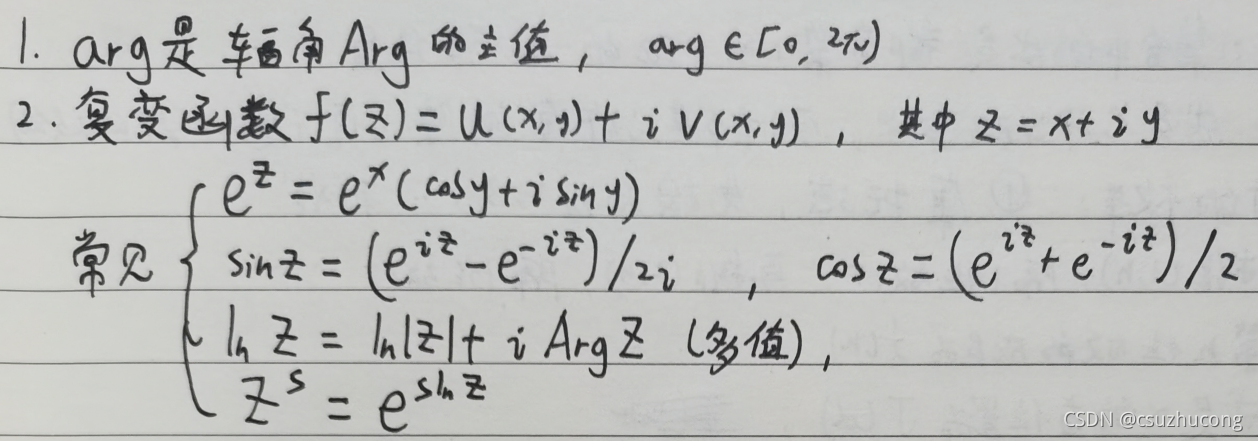 1. arg是辐角Arg的主值, arg∈[0, 2π)
2. 复变函数 f(z) = u(x,y) + i v(x,y), 其中 z = x + i y
e^z = e^x (cosy + i siny)
常见 { sinz = (e^{iz} - e^{-iz}) / 2i, cosz = (e^{iz} + e^{-iz}) / 2
ln z = ln|z| + i Arg z (多值),
z^s = e^{s ln z}
CSDN @csuzhucong